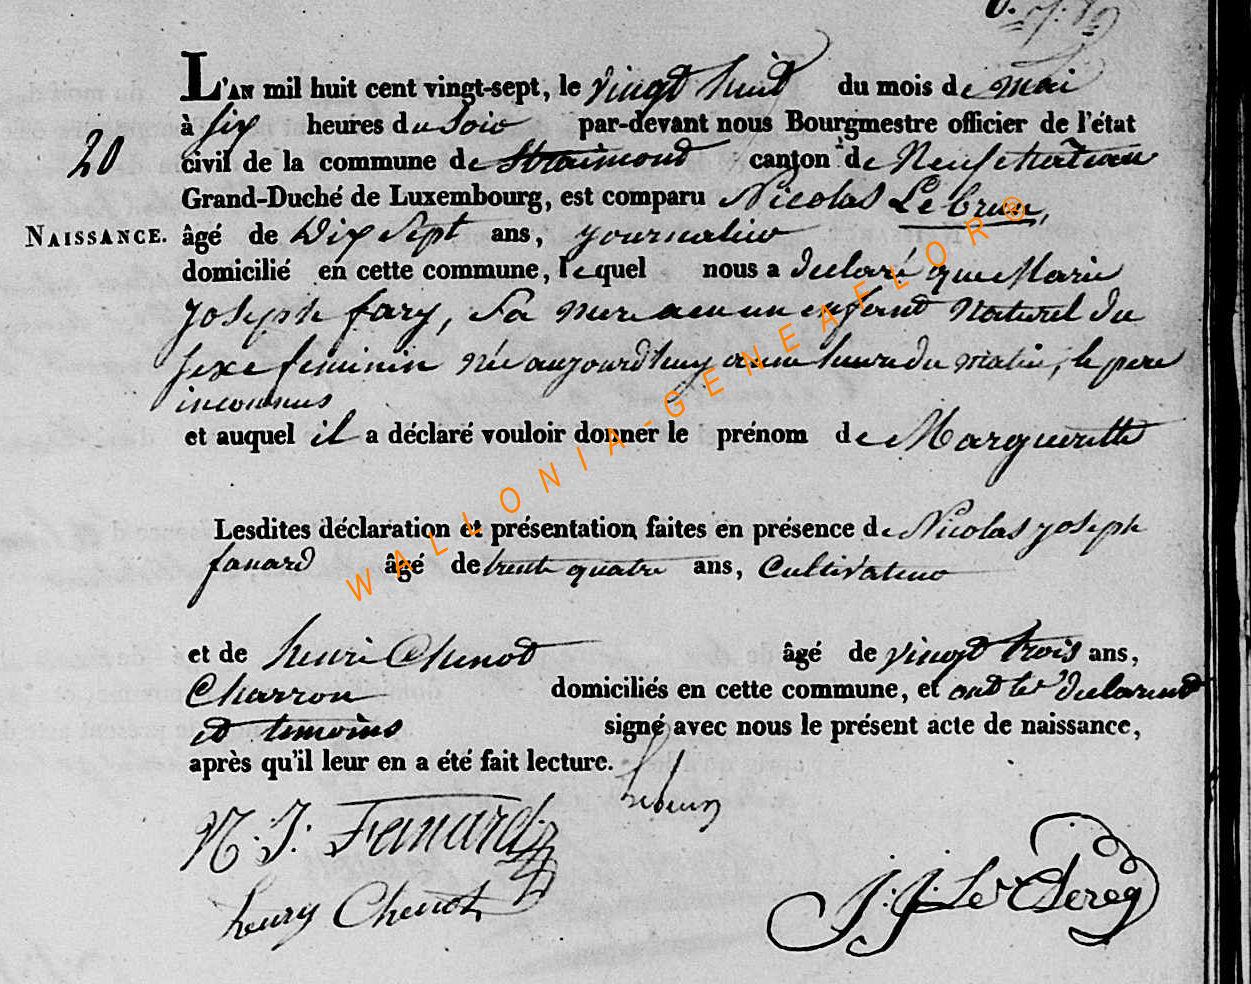 L'AN mil huit cent vingt-sept, le vingt huit du mois de mai
à six heures du Soir par-devant nous Bourgmestre officier de l'état
20
civil de la commune de Straimond canton de Neufchateau
Grand-Duché de Luxembourg, est comparu Nicolas Lebrun,
NAISSANCE.
âgé de Dix Sept ans, journalier
domicilié en cette commune, lequel nous a declaré que Marie
joseph fary, Sa mere a eu un enfant Naturel du
sexe feminin née aujourd'huy a une heure du matin, le pere
inconnus
et auquel il a déclaré vouloir donner le prénom de Margueritte
Lesdites déclaration et présentation faites en présence de Nicolas joseph
fanard âgé de trente quatre ans, Cultivateur
et de henri Chenot âgé de vingt trois ans,
Charron domiciliés en cette commune, et ont les declarant
et temoins signé avec nous le présent acte de naissance,
après qu'il leur en a été fait lecture.
lebrun
N. J. Fanard
henry Chenot
J. J. Le Clereq
WALLONIA-GENEAFLOR®